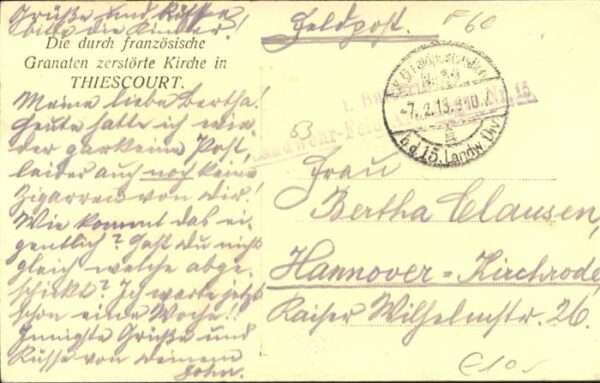 Grüße und Küsse
bitte die Kinder!
Die durch französische
Granaten zerstörte Kirche in
THIESCOURT.
Meine liebe Bertha!
Heute hatte ich wie
der gar keine Post,
leider auch noch keine
Zigarren von Dir!
Wie kommt das ei-
gentlich? Hast Du nicht
gleich welche abge-
schickt? Ich warte jetzt
schon eine Woche!!
Innigste Grüße und
Küsse von Deinem
John.
Feldpost.
F 60
7.2.15
b.d.15.Landw.Div.
1.
Landwehr-
Nr. 15
53
Frau
Bertha Clausen,
Hannover-Kirchrode
Kaiser Wilhelmstr. 26.
€10